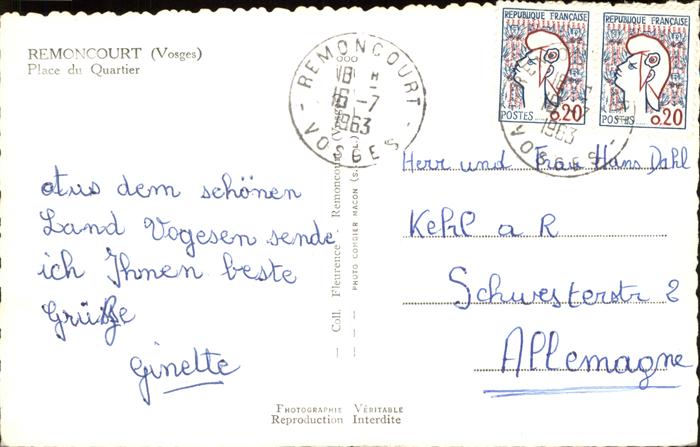 REMONCOURT (Vosges)
Place du Quartier
REPUBLIQUE FRANÇAISE
POSTES 0,20
REPUBLIQUE FRANÇAISE
POSTES 0,20
REMONCOURT
18 H
16-7
1963
VOSGES
1963
VOSGES
Aus dem schönen
Land Vogesen sende
ich Ihnen beste
Grüße
Ginette
Coll. Fleurence Remoncourt (Vosges)
PHOTO COMBIER MACON (S.
Herr und Frau Hans Dahl
Kehl a R
Schwesterstr 2
Allemagne
PHOTOGRAPHIE VÉRITABLE
Reproduction Interdite